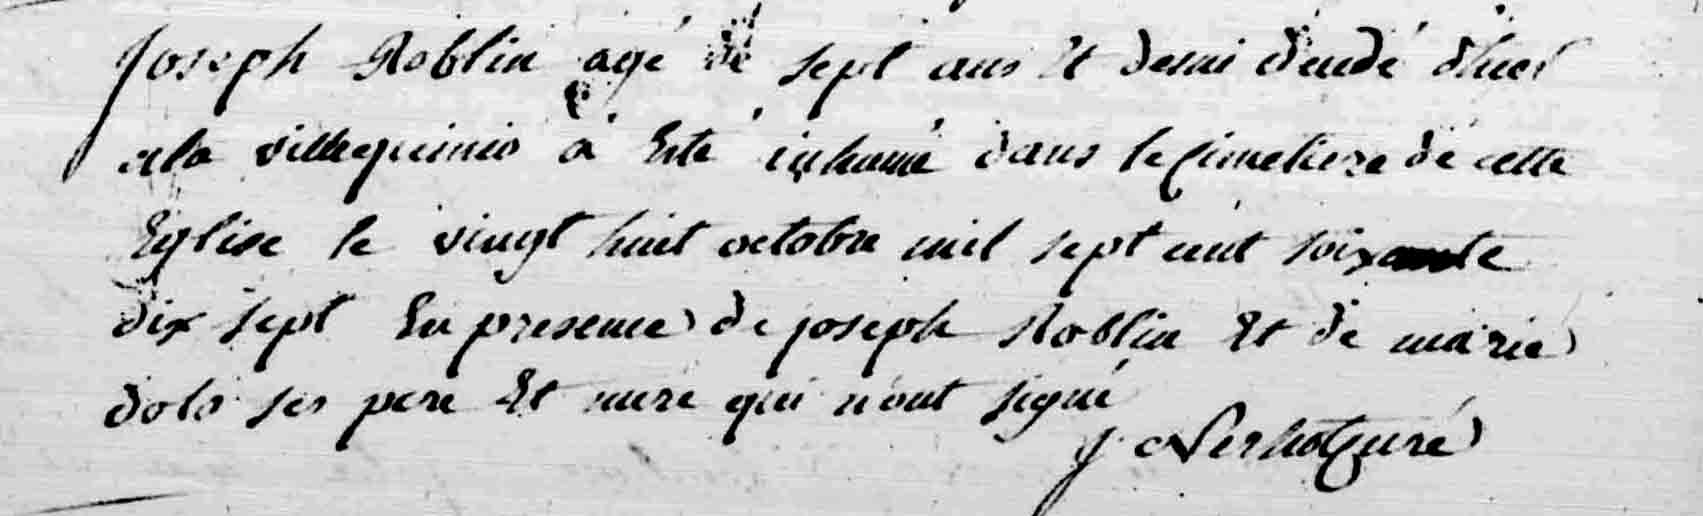 Joseph Roblin agé de sept ans Et demi décédé d'hier
a la villequinio a Esté inhumé dans le cimetiere de cette
Eglise le vingt huit octobre mil sept cent soixante
dix sept En presence de joseph Roblin Et de marie
dolo ses pere Et mere qui n'ont signé
J. curé